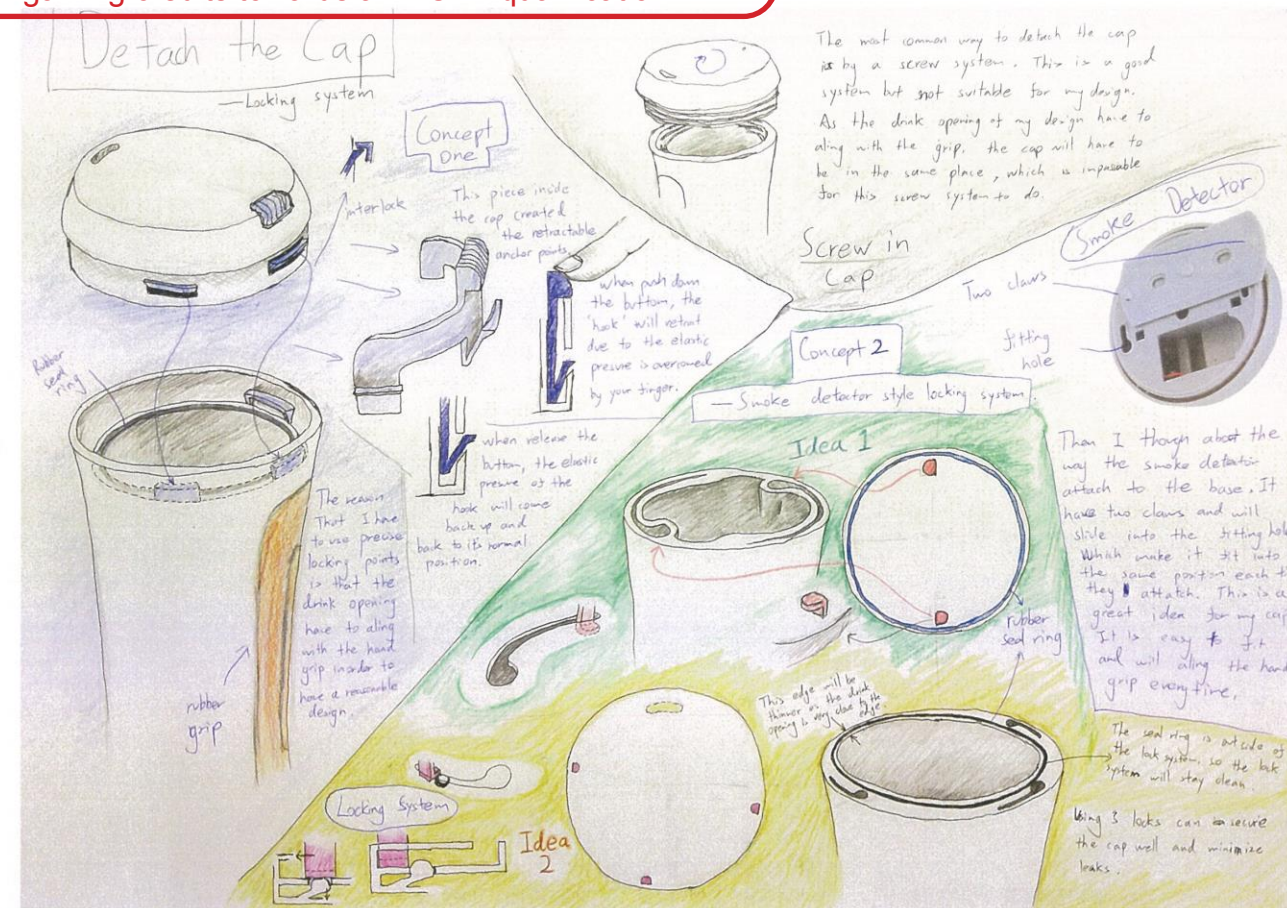 Detach the Cap
— Locking system
Concept
One
interlock
This piece inside
the cap created
the retractable
anchor points.
when push down
the button, the
'hook' will retrat
due to the elastic
presure is overcomed
by your finger.
when release the
button, the elastic
presure of the
hook will come
back up and
back to its normal
position.
Rubber
seal
ring
The reason
That I have
to use precise
locking points
is that the
drink opening
have to aling
with the hand
grip inorder to
have a reasonable
design.
rubber
grip
The most common way to detach the cap
is by a screw system. This is a good
system but not suitable for my design.
As the drink opening of my design have to
aling with the grip. the cap will have to
be in the same place, which is impasable
for this screw system to do.
Screw in
Cap
Smoke Detector
Two claws
fitting
hole
Concept 2
— Smoke detector style locking system.
Idea 1
rubber
seal ring
Then I though about the
way the smoke detector
attach to the base. It
have two claws and will
slide into the fitting hole
Which make it fit into
the same positon each
they attatch. This is a
great idea for my cap
It is easy to fit
and will aling the hand
grip everytime.
This edge will be
thinner as the drink
opening is very close to the
edge
The seal ring is outside of
the lock system, so the lock
system will stay clean.
Using 3 locks can secure
the cap well and minimize
leaks.
Locking System
Idea
2